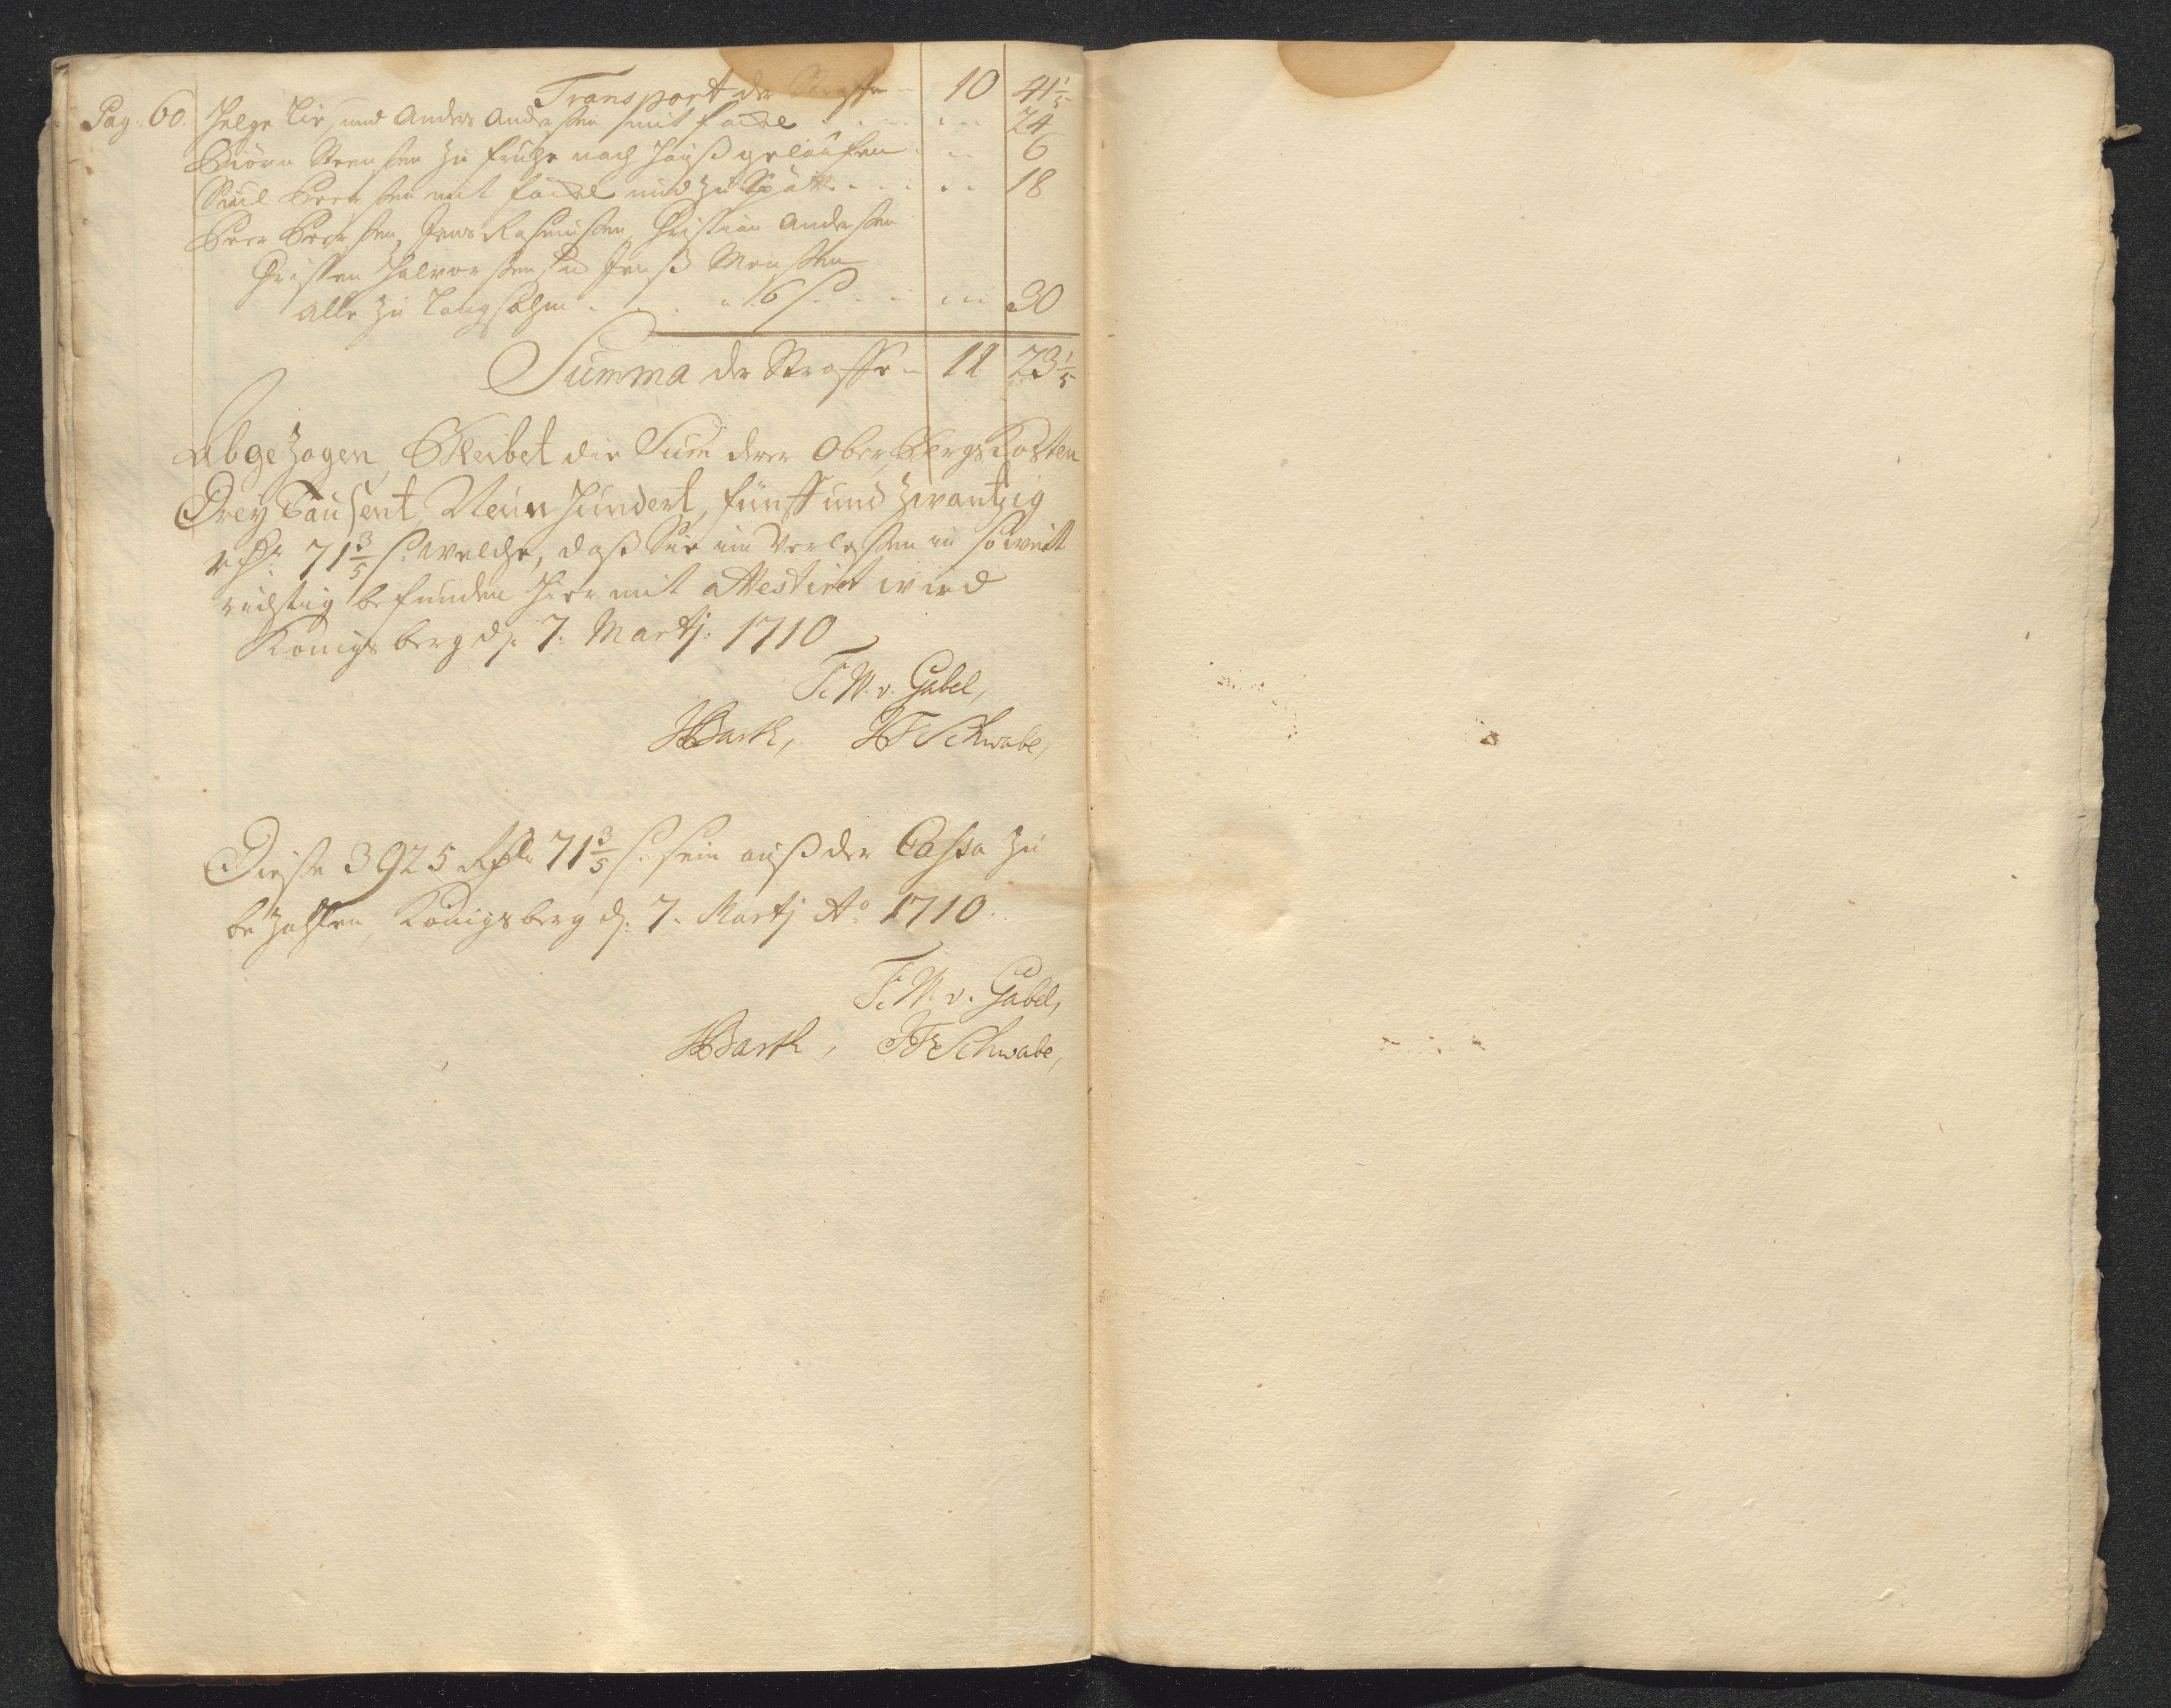 Transport der Straffe - 10 41 1/5
Pag. 60. Helge Lie, und Anders Anderßen mit fackel . . . . . . 24
Biörn Steenßen zu frühe nach Hauß gelauffen . . . 6
Poul Peerßen mit fackel und zu Spätt . . . . . . 18
Peer Peerßen, Jens Rasmußen, Christian Anderßen
Christen Halvorßen und Jenß Monßen
alle zu Langsahm . . . a 6 ß . . . . . . 30
Summa der Straffe - 11 23 1/5
Abgezogen, Bleibet die Sum derer Ober Bergs Kosten
Drey Tausent, Neun Hundert, fünff und zwantzig
rdr. 71 3/5 ß. welche, daß Sie im Verleßen in so weit
richtig befunden hier mit attestiret wird
Königsberg d. 7. Martj. 1710
F. W. v. Gabel,
HBarth, HF Schwabe,
Dieße 3925 Rdlr 71 3/5 ß. sein auß der Cassa zu
bezahlen, Königsberg d. 7. Martj Ao 1710.
F. W. v. Gabel,
HBarth, HF Schwabe,